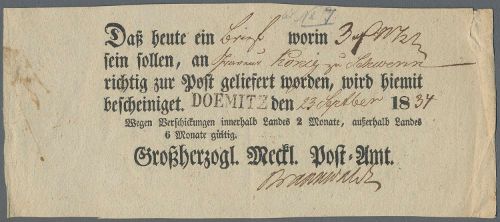 No 7
Daß heute ein Brief worin 3
sein sollen, an König zu Schwerin
richtig zur Post geliefert worden, wird hiemit
bescheiniget. DOEMITZ den 23 September 1834
Wegen Verschickungen innerhalb Landes 2 Monate, außerhalb Landes
6 Monate gültig.
Großherzogl. Meckl. Post-Amt.